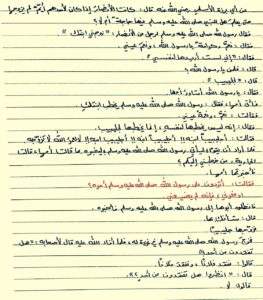 عن أبي برزة الأسلمي رضي الله عنه قال: كانت الأنصار إذا كان لأحدهم أيّم لم يزوجها
حتى يعلم هل للنبي صلى الله عليه وسلم فيها حاجة أم لا؟
فقال رسول الله صلى الله عليه وسلم لرجل من الأنصار: "زوجني ابنتك"
فقال: نعم وكرامة يا رسول الله ونعم عيني
قال: "إني لست أريدها لنفسي"
قال: فلمن يا رسول الله؟
قال: "لجليبيب"
فقال: يا رسول الله أشاور أمها.
فأتى أمها فقال: رسول الله صلى الله عليه وسلم يخطب ابنتك.
فقالت: نعم ونعمة عيني.
فقال: إنه ليس يخطبها لنفسه، إنما يخطبها لجليبيب.
فقالت: أجليبيب ابنه! أجليبيب ابنه! أجليبيب ابنه! لا لعمر الله لا نزوجه.
فلما أراد أن يقوم ليأتي رسول الله صلى الله عليه وسلم ليخبره بما قالت أمها، قالت
الجارية: من خطبني إليكم؟
فأخبرتها أمها.
فقالت: أتردون على رسول الله صلى الله عليه وسلم أمره؟
ادفعوني فإنه لم يضيعني
فانطلق أبوها إلى رسول الله صلى الله عليه وسلم فأخبره.
قال: شأنك بها.
فزوجها جليبيبا
فخرج رسول الله صلى الله عليه وسلم في غزوة له، فلما أفاء الله عليه قال لأصحابه: "هل
تفقدون من أحد؟"
قالوا: نفقد فلانًا، ونفقد فلانًا.
قال: "انظروا هل تفقدون من أحد؟"
قالوا: لا.